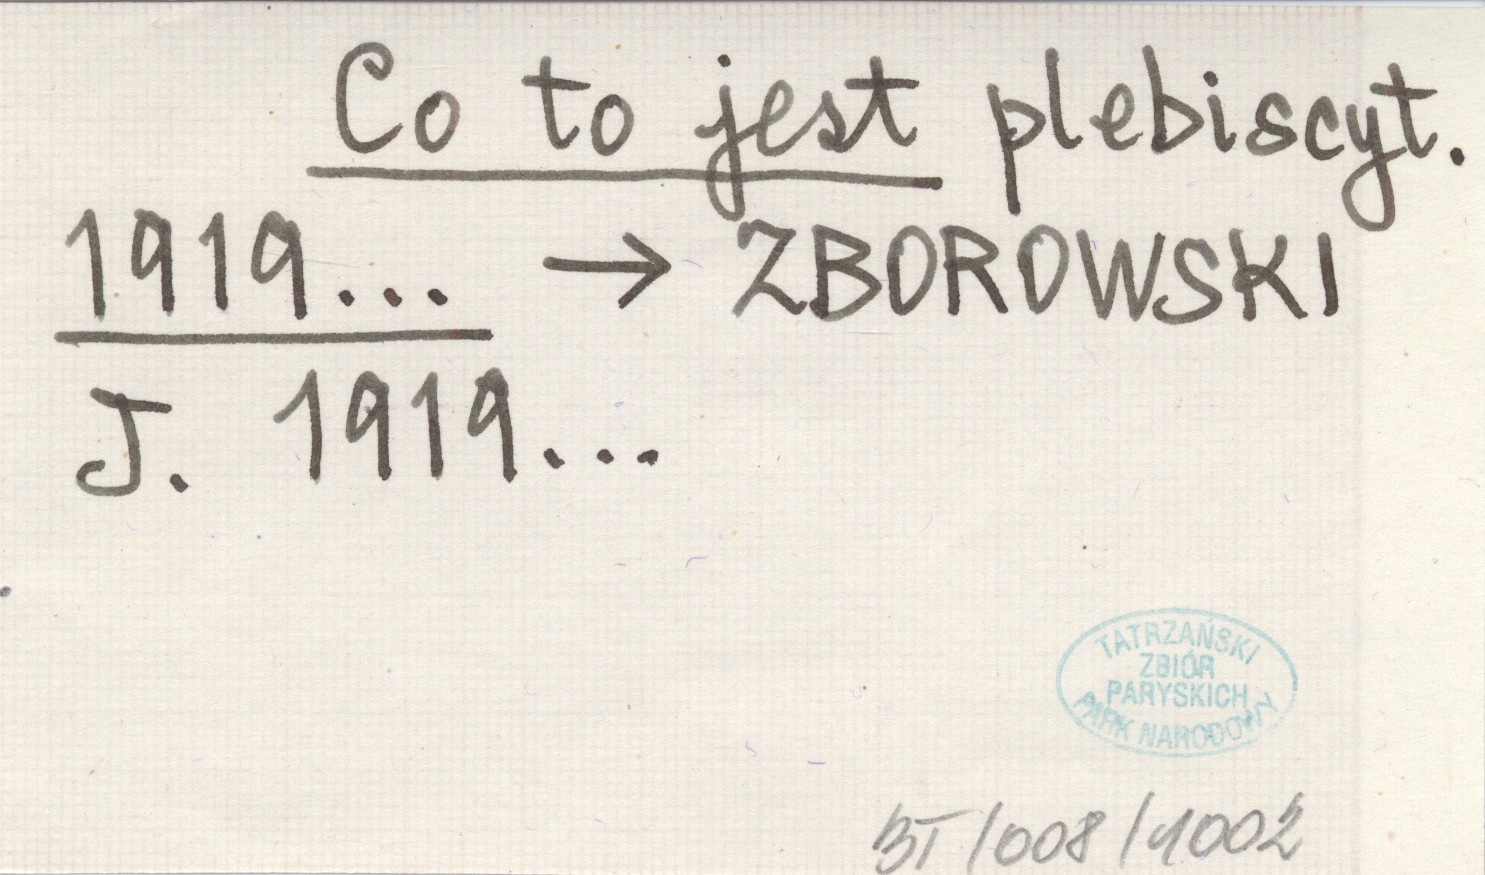 Co to jest plebiscyt.
1919... → ZBOROWSKI
J. 1919...
TATRZAŃSKI
ZBIÓR
PARYSKICH
PARK NARODOWY
BT/008/1002